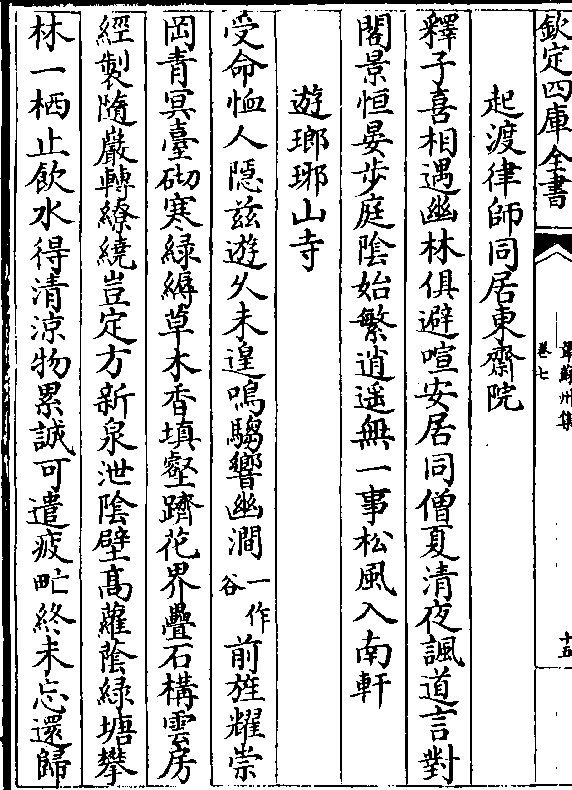 欽定四庫全書
韋蘇州集
卷七
十五
起渡律師同居東齋院
釋子喜相遇幽林俱避喧安居同僧夏清夜諷道言對
閣景恒晏步庭陰始繁逍遥無一事松風入南軒
遊瑯琊山寺
受命恤人隱兹遊久未遑鳴騶響幽澗一作谷前旌耀崇
岡青冥臺砌寒綠縟草木香填壑躋花界疊石構雲房
經製隨巖轉繚繞豈定方新泉泄陰壁高蘿蔭綠塘攀
林一栖止飲水得清涼物累誠可遣疲甿終未忘還歸